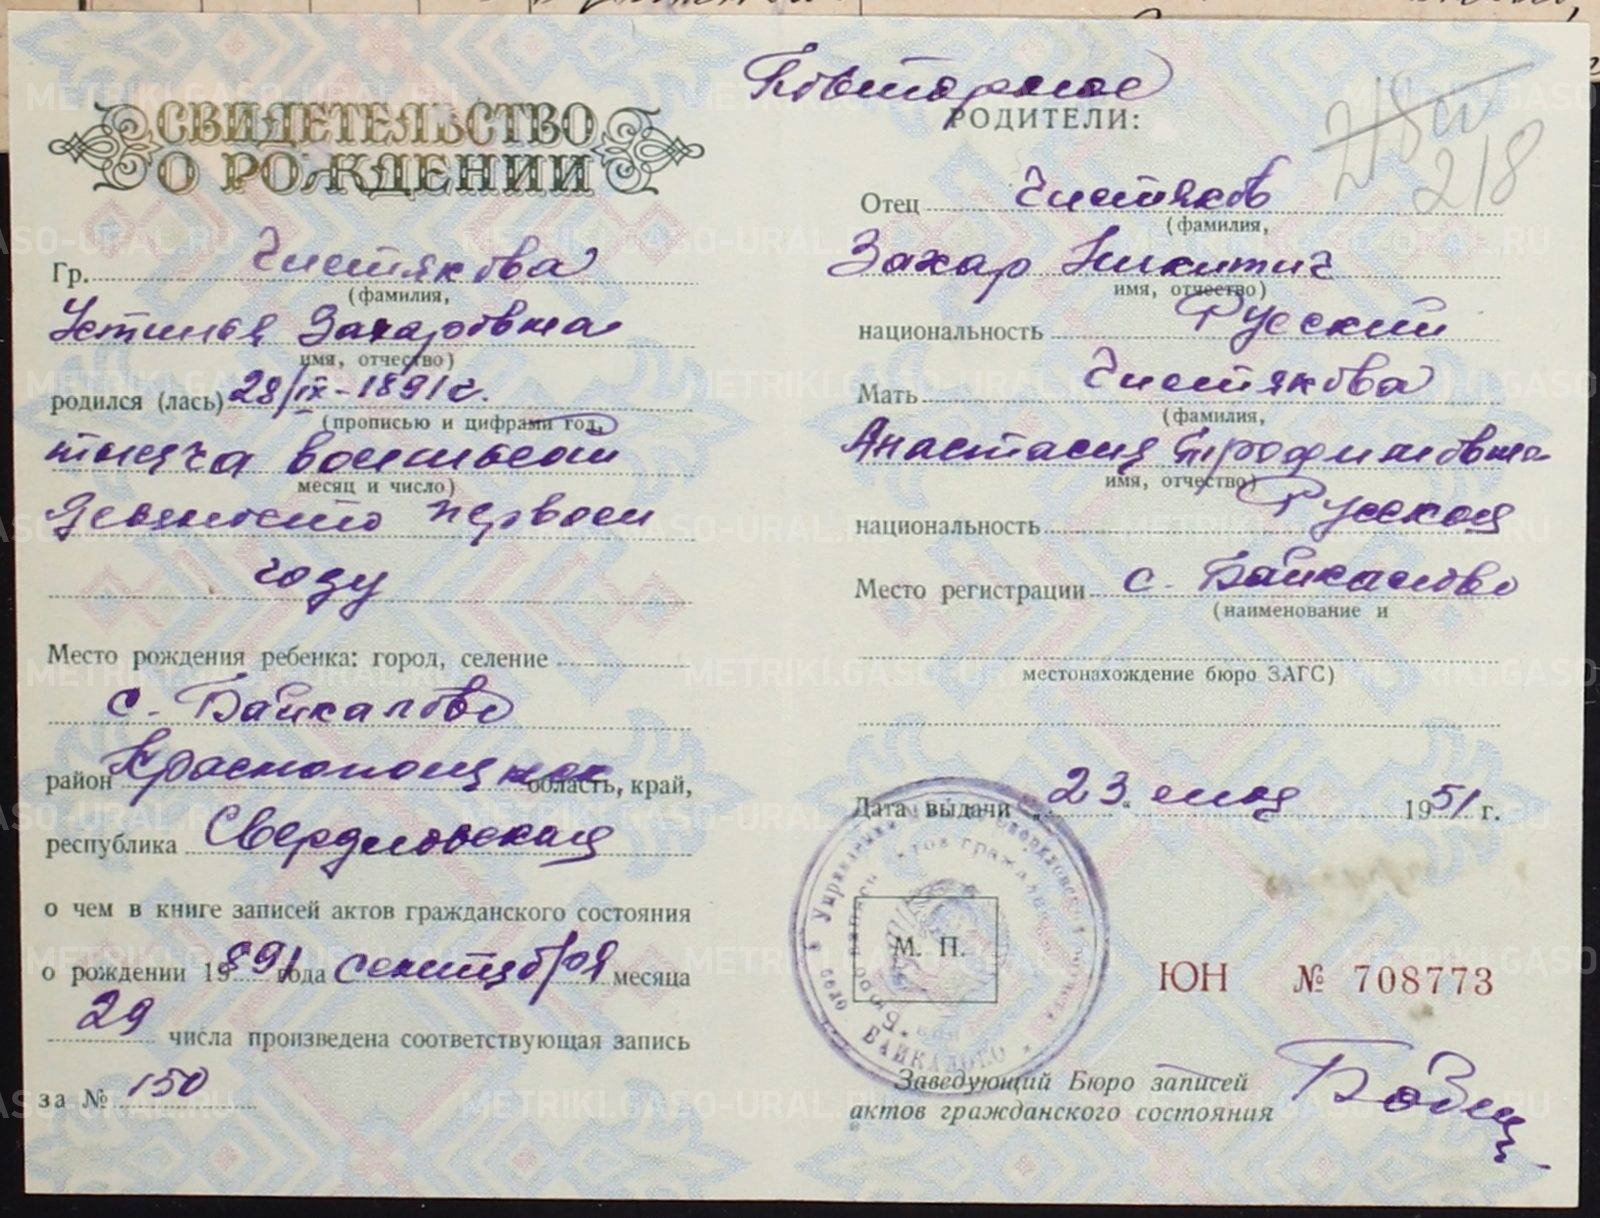 Повторное
СВИДЕТЕЛЬСТВО
О РОЖДЕНИИ
Гр. Чистякова
(фамилия,
Устинья Захаровна
имя, отчество)
родился (лась) 28/IX-1891 г.
(прописью и цифрами год,
тысяча восемьсот
месяц и число)
девяносто первом
году
Место рождения ребенка: город, селение
с. Байкалово
район Краснополянск область, край,
республика Свердловская
о чем в книге записей актов гражданского состояния
о рождении 1891 года сентября месяца
29 числа произведена соответствующая запись
за № 150
РОДИТЕЛИ:
218
218
Отец Чистяков
(фамилия,
Захар Никитич
имя, отчество)
национальность Русский
Мать Чистякова
(фамилия,
Анастасия Трофимовна
имя, отчество)
национальность Русская
Место регистрации с. Байкалово
(наименование и
местонахождение бюро ЗАГС)
Дата выдачи „23“ мая 1951 г.
М. П.
БАЙКАЛОВО
ЮН № 708773
Заведующий Бюро записей
актов гражданского состояния
METRIKI.GASO-URAL.RU